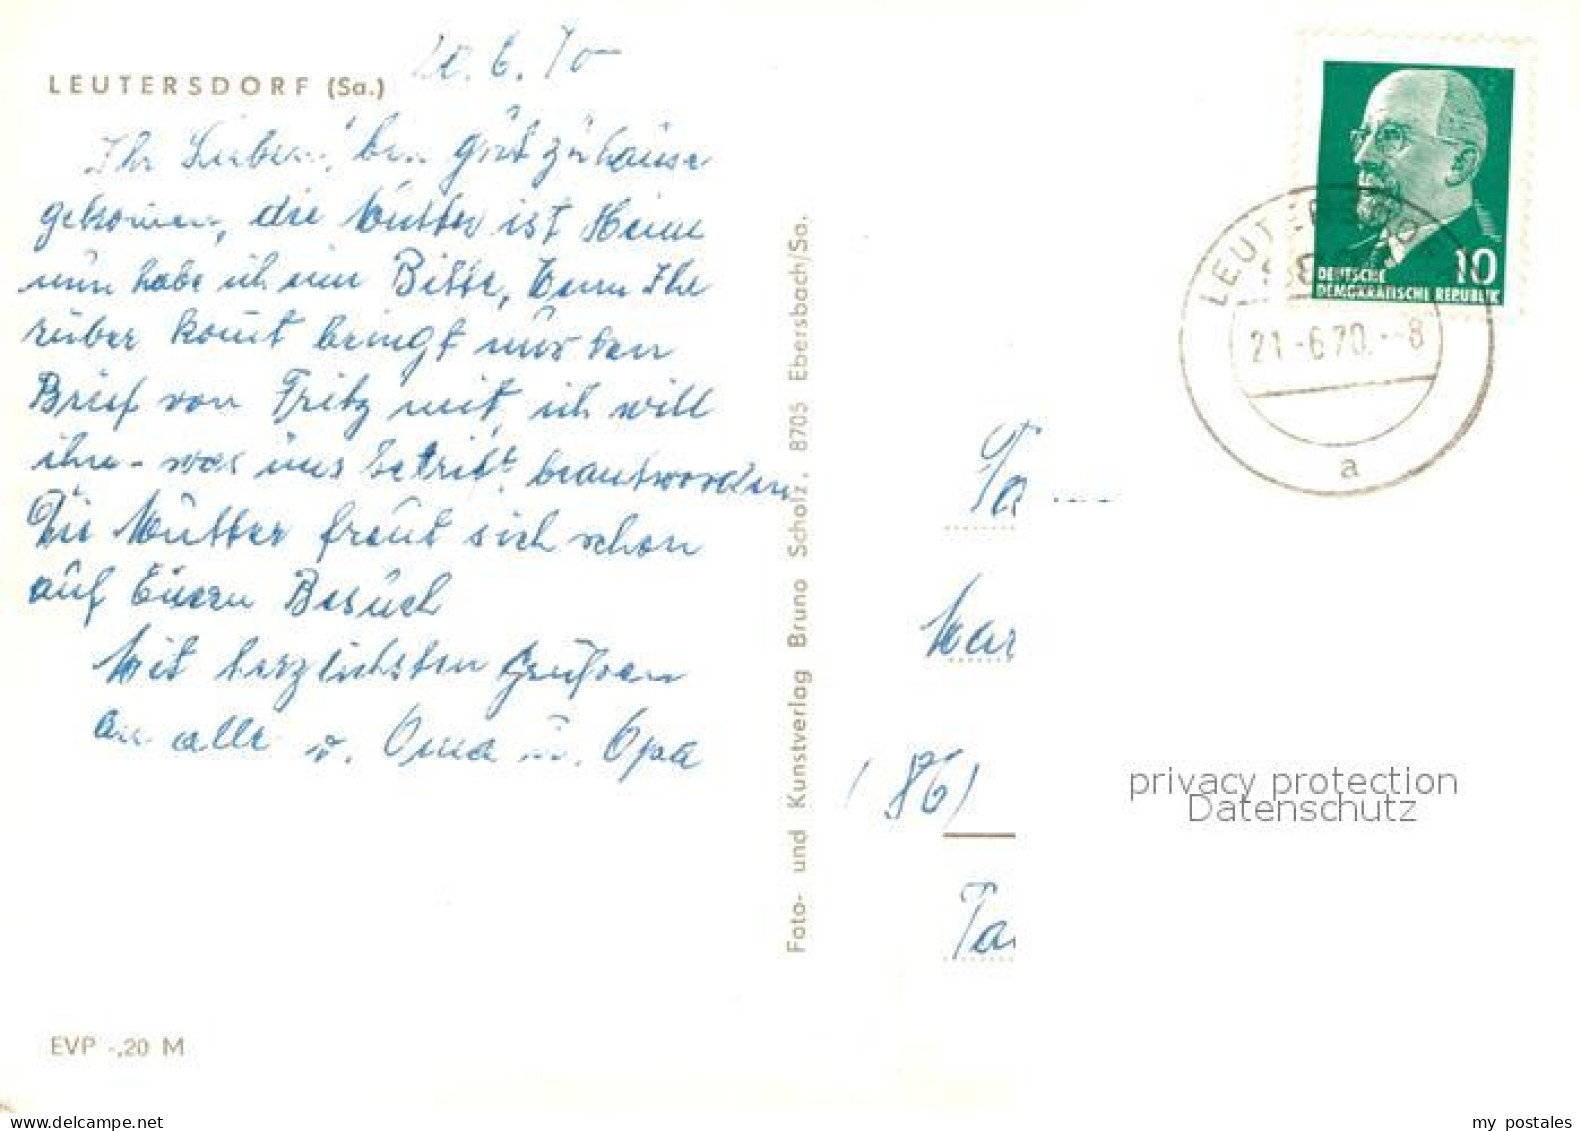 LEUTERSDORF (Sa.)
20.6.70
Ihr Lieben, bin gut zuhause
gekommen, die Mutter ist Heim
nun habe ich ein Bitte, Wenn Ihr
rüber komt bringt mir den
Brief von Fritz mit, ich will
ihn - was uns betrift beantworden
Die Mutter freut sich schon
auf Euern Besuch
Mit herzlichsten Grüssen
an alle v. Oma u. Opa
EVP -,20 M
Foto- und Kunstverlag Bruno Scholz, 8705 Ebersbach/Sa.
10
DEUTSCHE
DEMOKRATISCHE REPUBLIK
LEUTERSDORF
21.-6.70.--8
a
Fa
(86)
privacy protection
Datenschutz
www.delcampe.net
my_postales